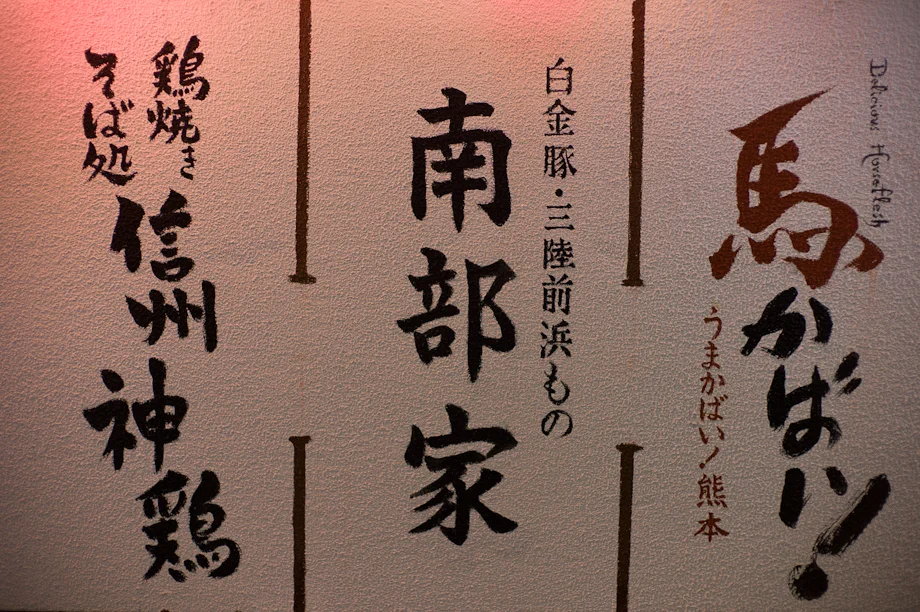 Delicious Horseflesh
馬かばい!
うまかばい!熊本
白金豚・三陸前浜もの
南部家
鶏焼き
そば処
信州神鶏